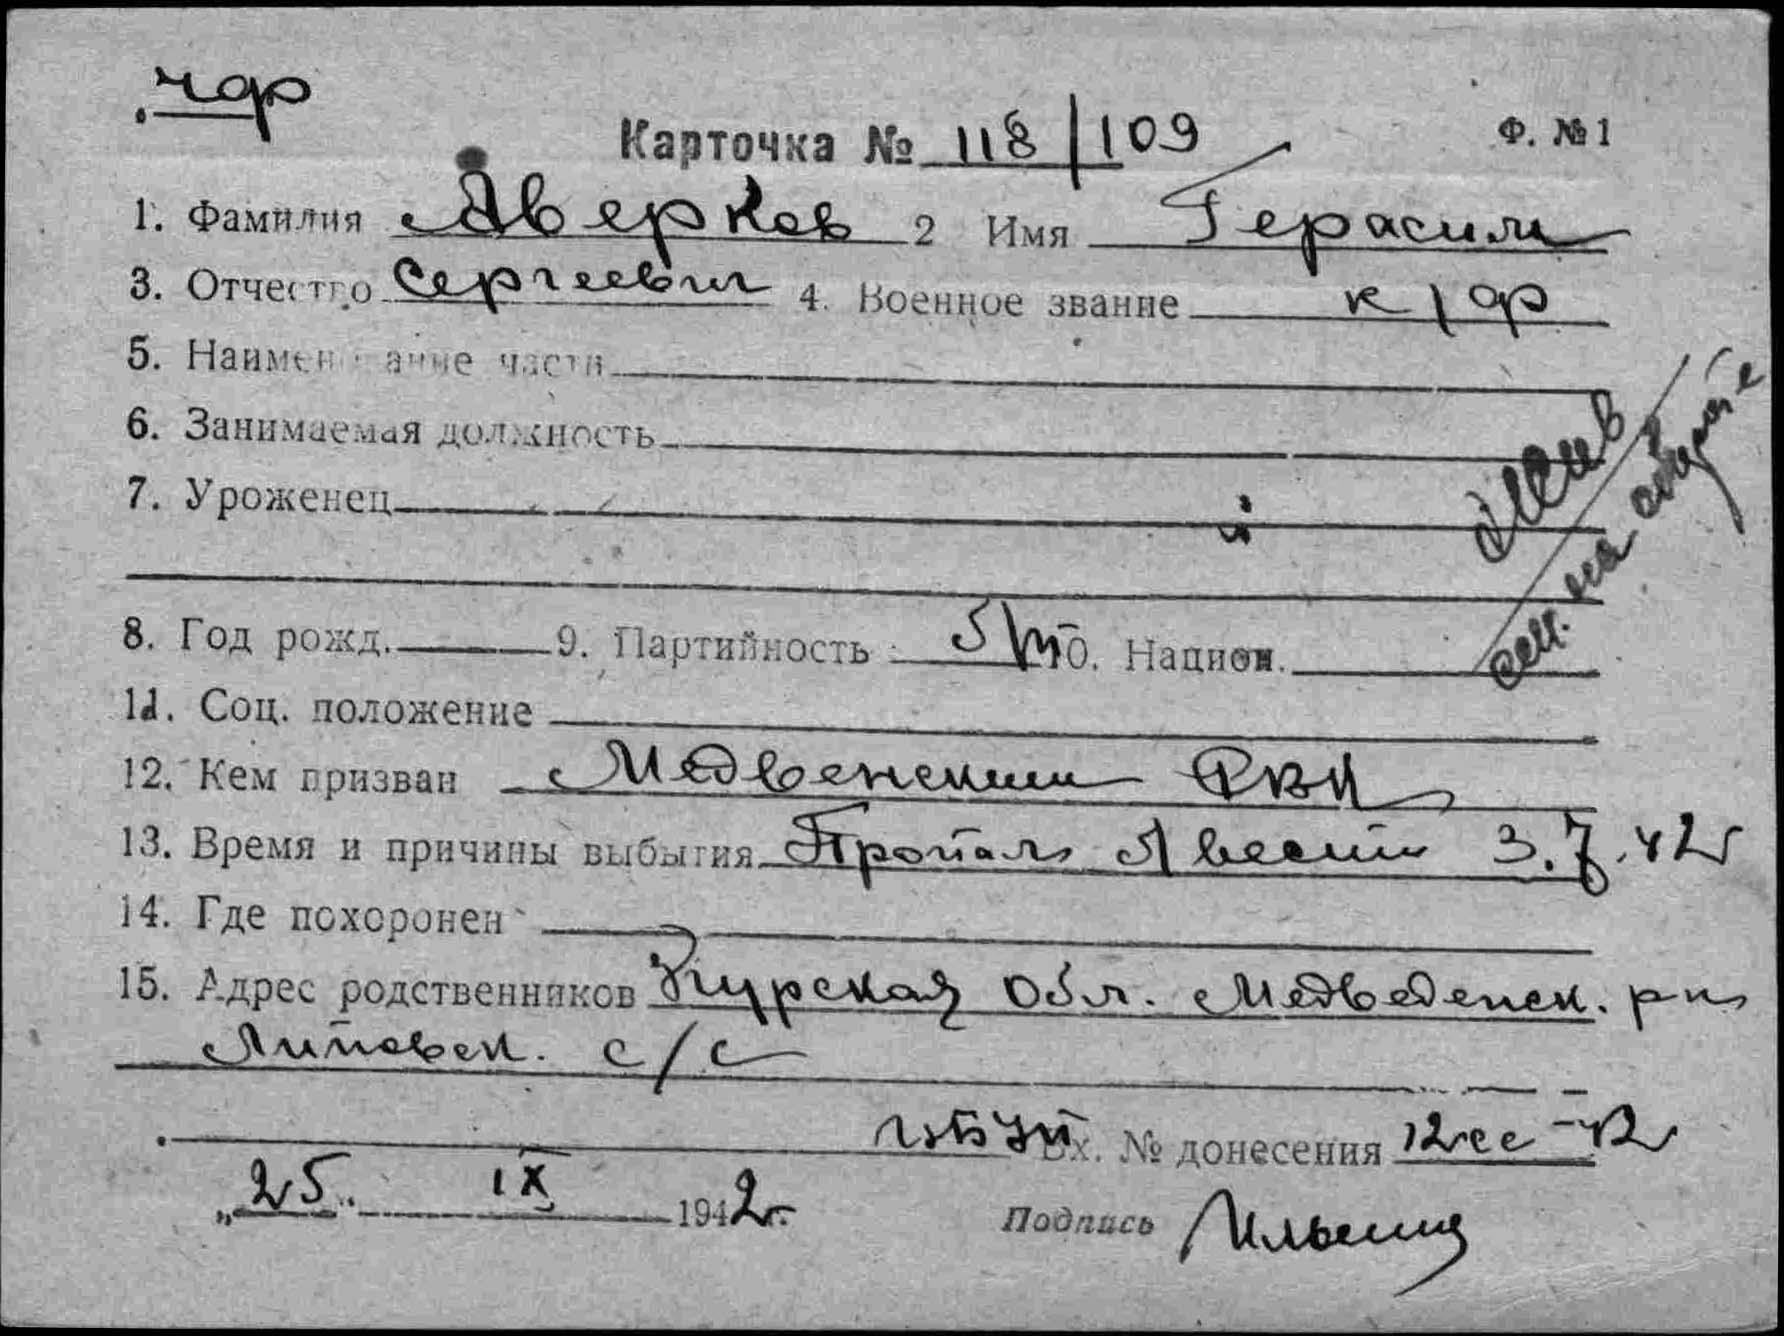 чф
Карточка № 118/109 Ф. № 1
1. Фамилия Аверков 2 Имя Герасим
3. Отчество Сергеевич 4. Военное звание к/ф
5. Наименование части
6. Занимаемая должность
7. Уроженец
жив
см. на обороте
8. Год рожд. 9. Партийность б/п 10. Национ.
11. Соц. положение
12. Кем призван Медвенским РВК
13. Время и причины выбытия Пропал Авести 3.7.42г
14. Где похоронен
15. Адрес родственников Курская обл. Медведенск. р-н
Липовск. с/с
Вх. № донесения 12сс-42
„25" IX 1942г.
Подпись Ильина